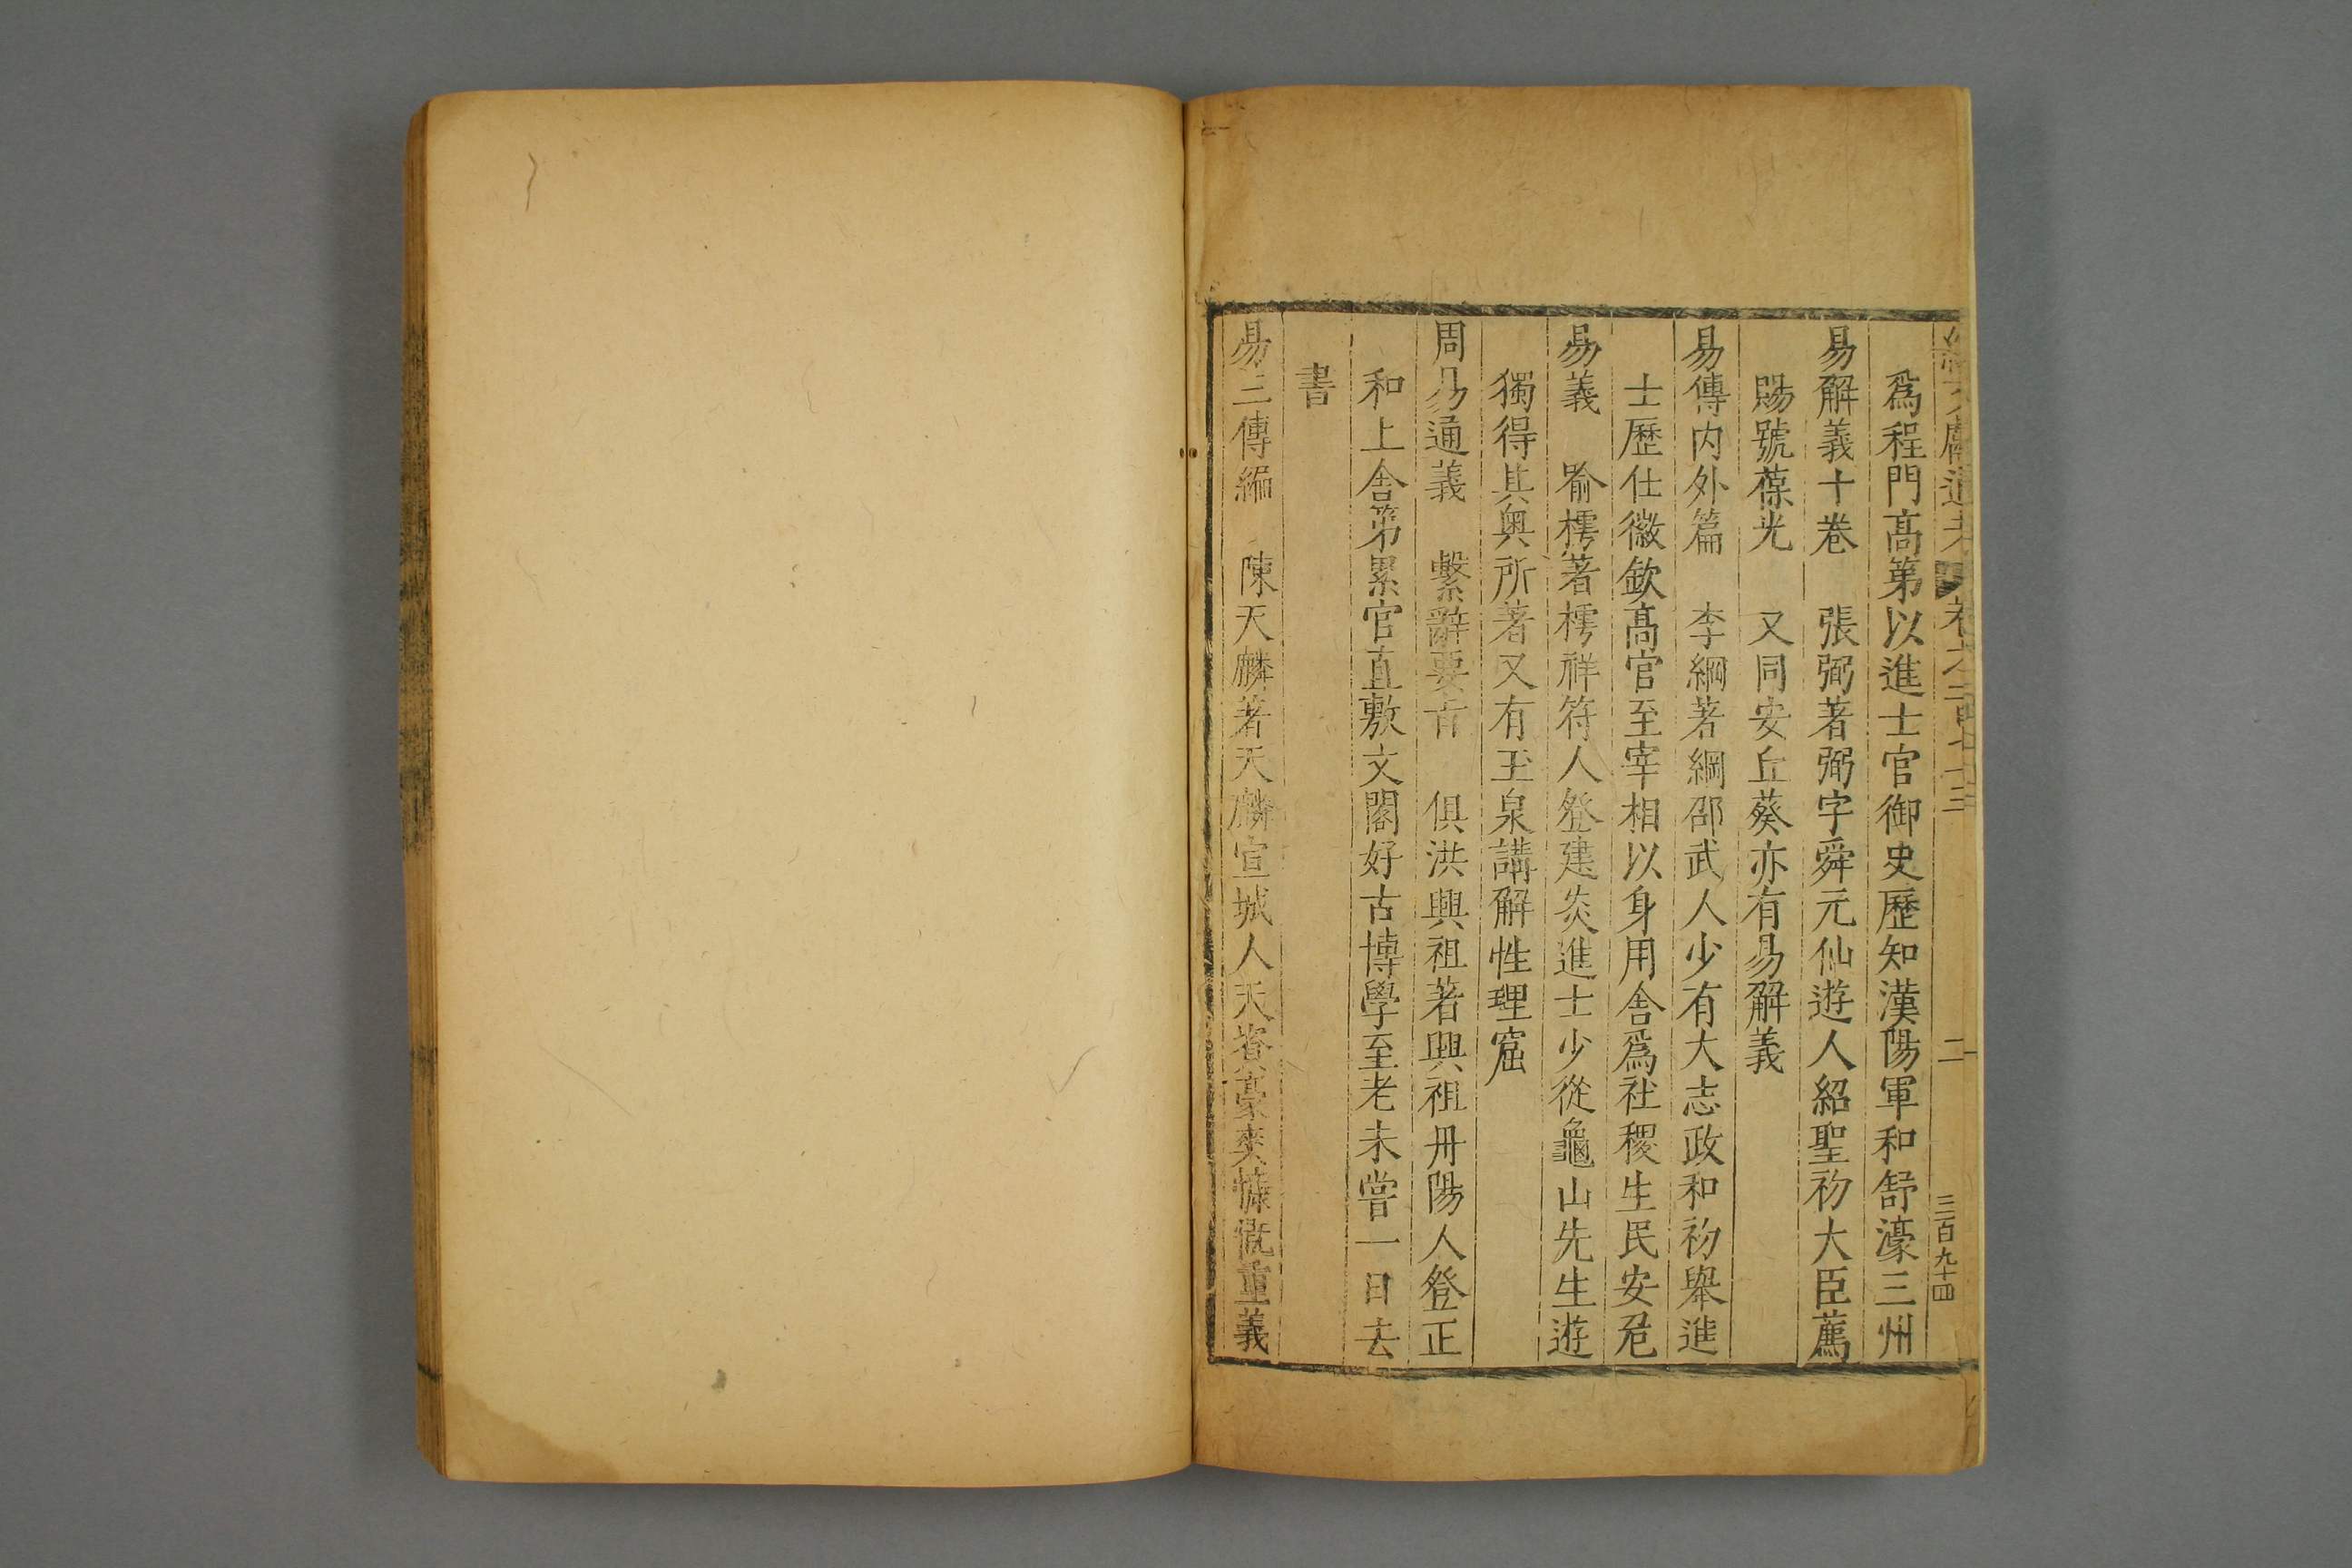 續文獻通考 卷之一百七十三 二 三百九十四
爲程門高第以進士官御史歷知漢陽軍和舒濠三州
易解義十卷 張弼著弼字舜元仙遊人紹聖初大臣薦
賜號葆光 又同安丘葵亦有易解義
易傳内外篇 李綱著綱邵武人少有大志政和初舉進
士歷仕徽欽高官至宰相以身用舍爲社稷生民安危
易義 喻樗著樗祥符人登建炎進士少從龜山先生遊
獨得其奥所著又有玉泉講解性理窟
周易通義 繫辭要旨 俱洪興祖著興祖丹陽人登正
和上舍第累官直敷文閣好古博學至老未嘗一日去
書
易三傳編 陳天麟著天麟宣城人天資豪爽慷慨重義